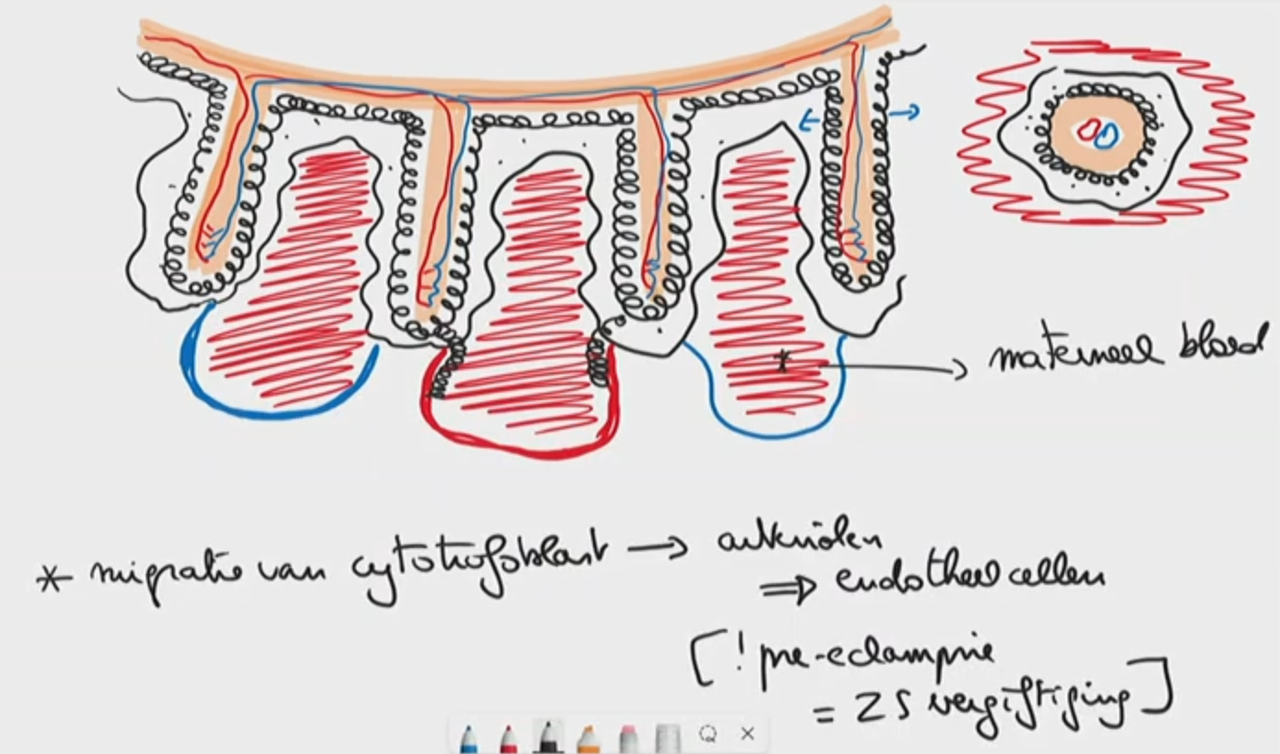 materneel bloed
* migratie van cytotrofoblast → arteriolen
⇒ endotheelcellen
[! pre-eclampsie
= ZS vergiftiging]